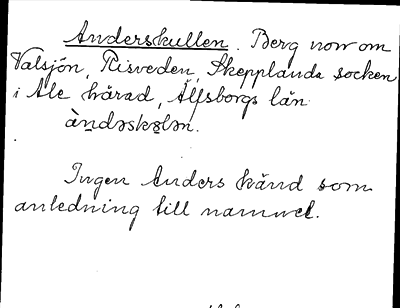 Anderskullen. Berg norr om
Valsjön, Risveden, Skepplanda socken
i Ale härad, Älfsborgs län
àndəskələn.
Ingen Anders känd som
anledning till namnet.